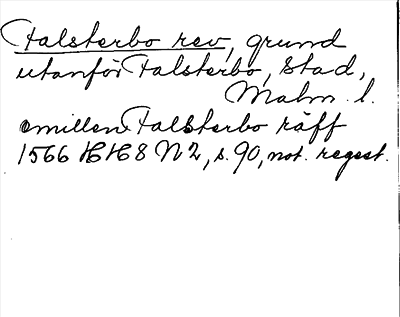 Falsterbo rev, grund
utanför Falsterbo, stad,
Malm. l.
emillen Falsterbo räff
1566 HH8 N2, s. 90, not. regest.